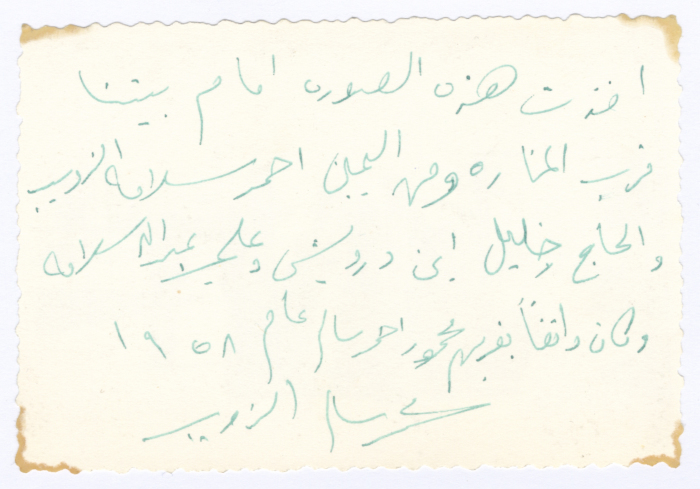 اخذت هذه الصوره امام بيتنا
قرب المناره ومن اليمين احمد سلامه الزويب
والحاج خليل ابن درويش وعلي عبدالله سلامه
وكان واقفاً بقربهم محمود احمد سالم عام ١٩٥٨
سالم الزويب